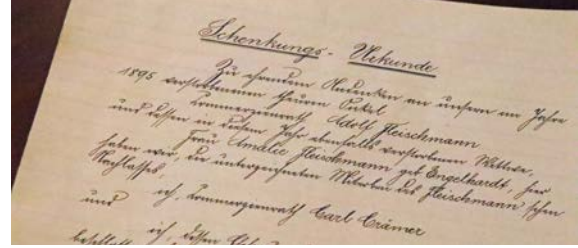 Schenkungs-Urkunde
Zu ehrendem Andenken an unsern im Jahre
1895 verstorbenen theuren Onkel
Commerzienrath Adolf Fleischmann
und dessen in diesem Jahr ebenfalls verstorbenen Wittwe,
Frau Amalie Fleischmann geb Engelhardt, hier
haben wir, die unterzeichneten Miterben des Fleischmann'schen
Nachlasses,
ich, Commerzienrath Carl Crämer
und
ich, dessen